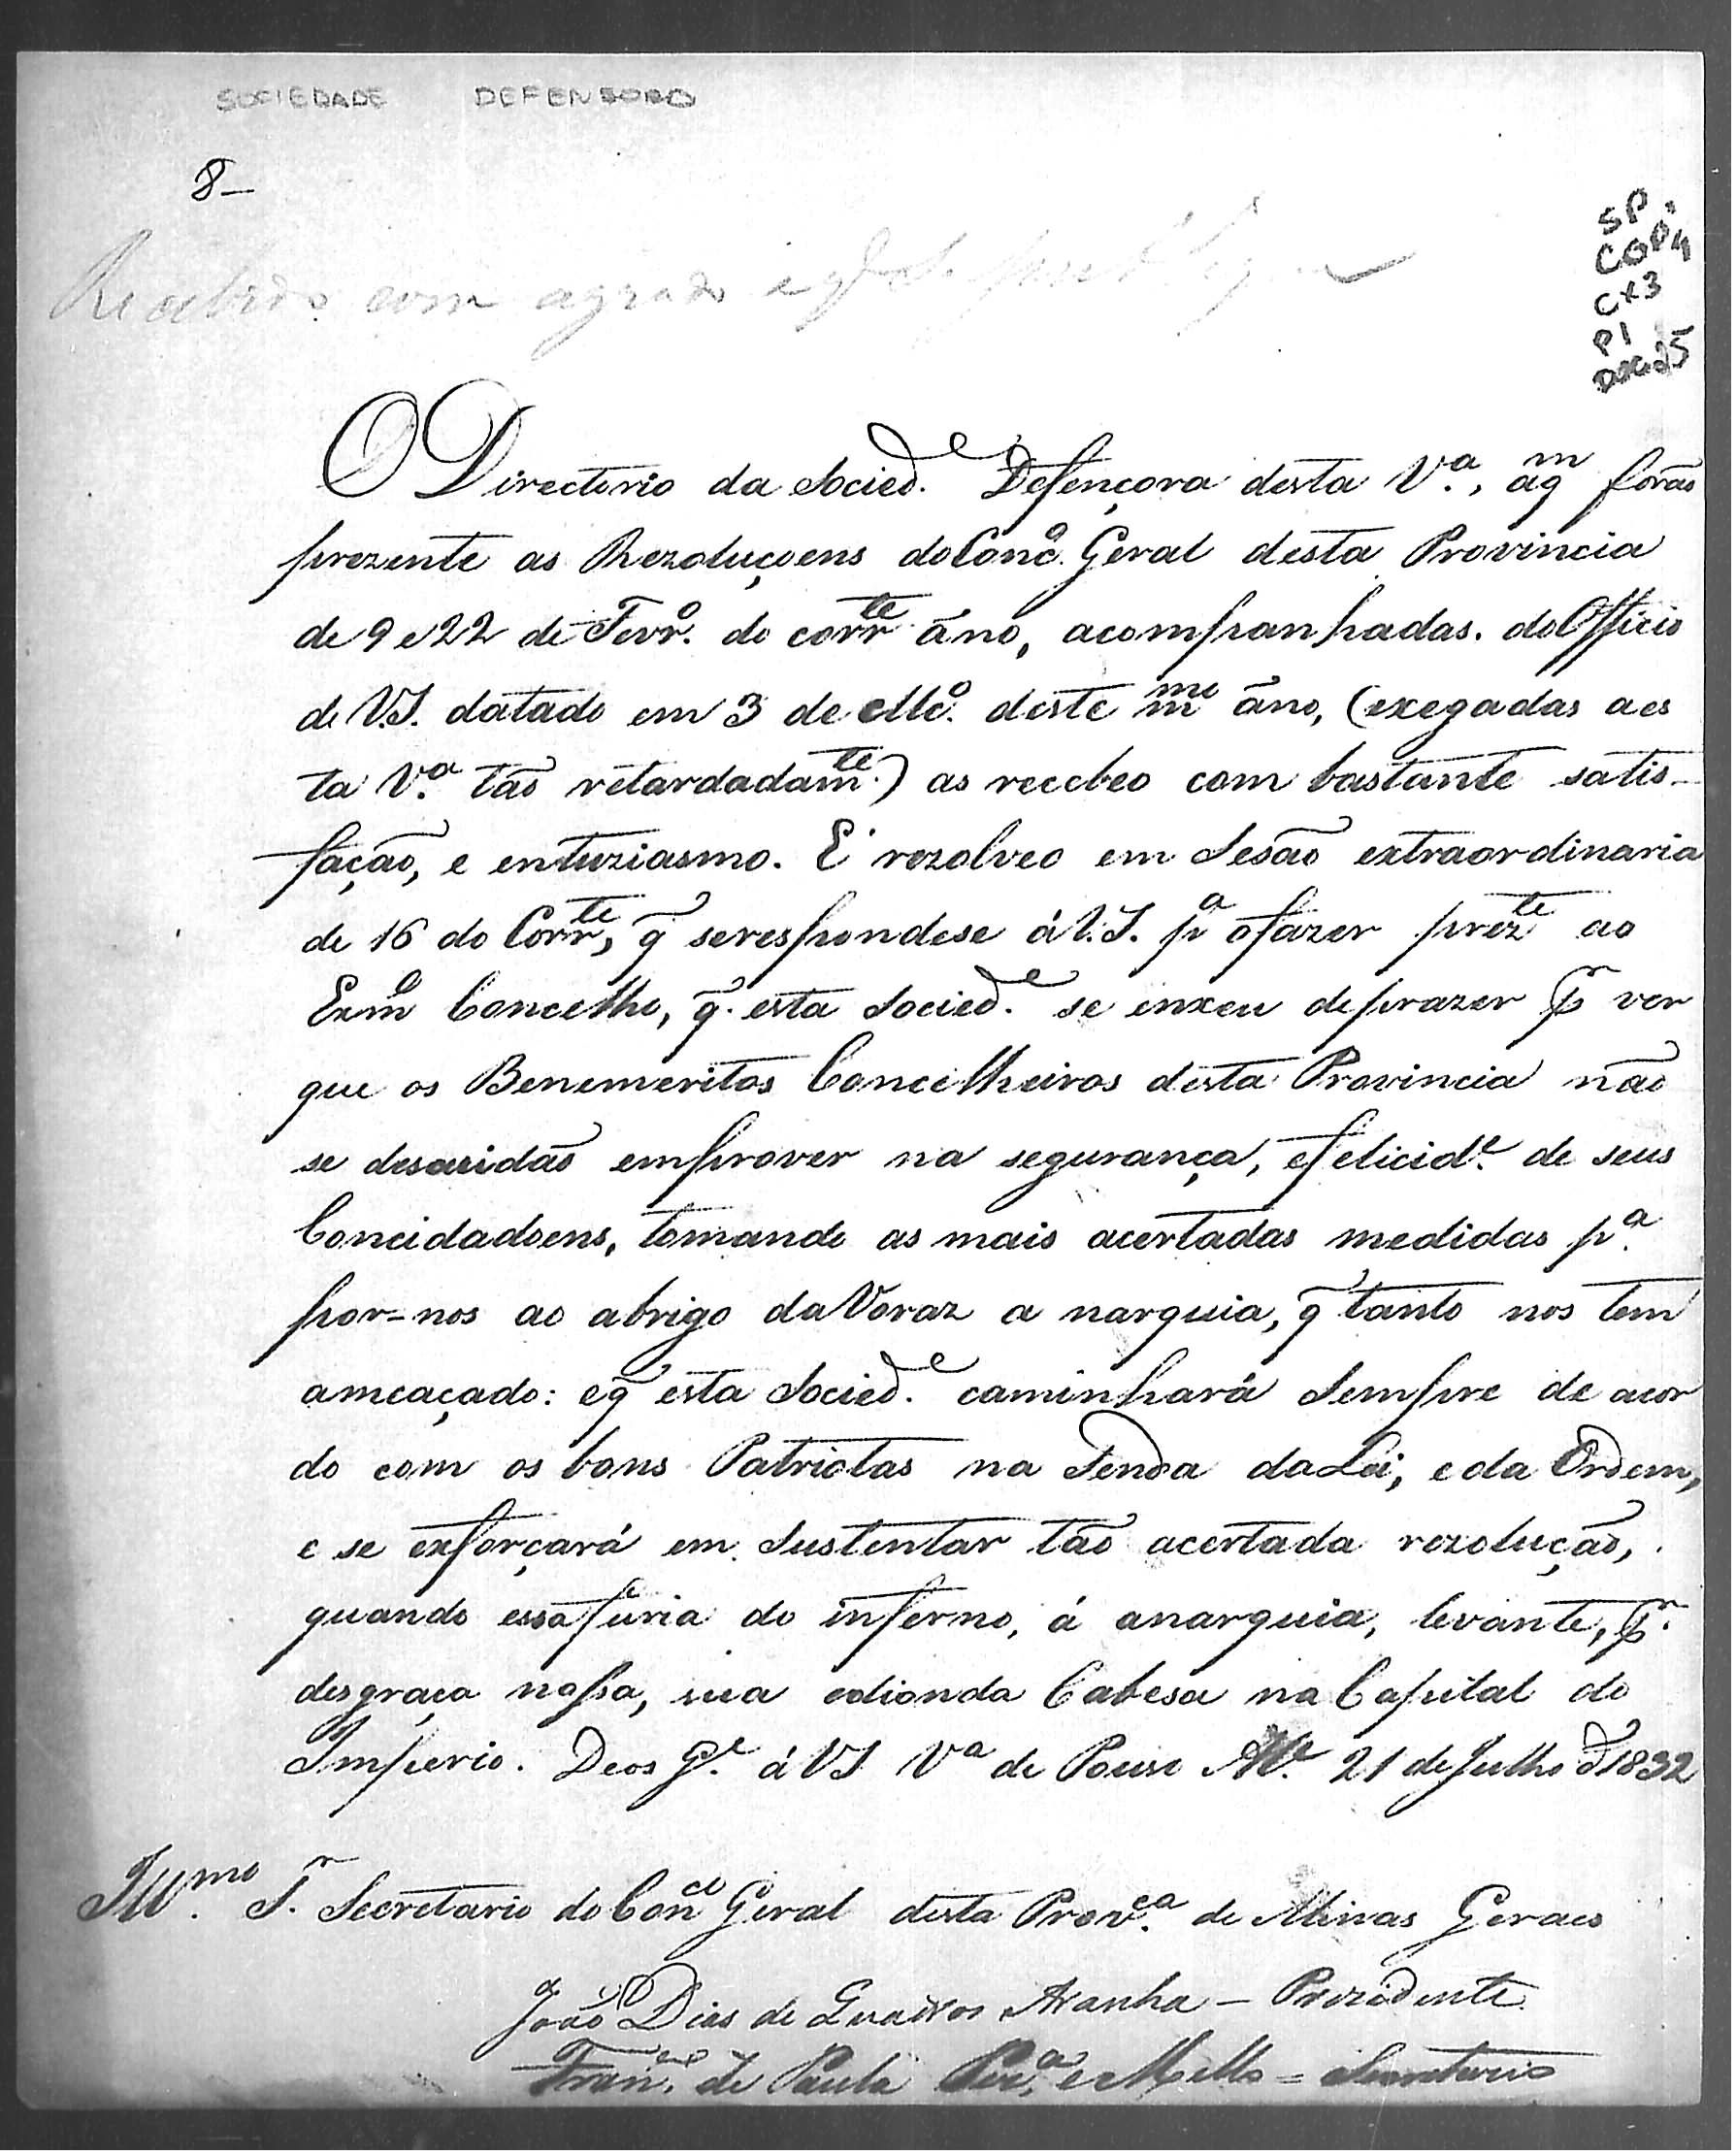 SOCIEDADE DEFENSORA
8-
Recebido com agrado
SP.
COP4
CX3
P1
DOC.25
O Directorio da Socied.e Defençora desta V.a, aqm forão
prezente as Rezoluçoens do Conc.o Geral desta Provincia
de 9 e 22 de Fevr.o do corr.te āno, acompanhadas. do Officio
de V.S. datado em 3 de Mc.o deste mmo āno, (exegadas a es
ta V.a tão retardadam.te) as recebeo com bastante satis-
fação, e entuziasmo. E rezolveo em Sesão extraordinaria
de 16 do Corr.te, q̃ serespondese á V.S. p.a ofazer prez.te ao
Exm.o Concelho, q̃. esta Socied.e se enxeu deprazer pr ver
que os Benemeritos Concelheiros desta Provincia não
se descuidão emprover na segurança, efelicid.e de seus
Concidadoens, tomando as mais acertadas medidas p.a
por-nos ao abrigo daVoraz a narquia, q̃ tanto nos tem
ameaçado: eq̃ esta Socied.e caminhará Sempre de acor
do com os bons Patriotas na Senda daLei, e da Ordem,
e se exforçará em Sustentar tão acertada rezolução,
quando essa furia do inferno, á anarquia, levante, pr.
desgraça nossa, sua edionda Cabesa na Capital do
Imperio. Deos G.e á VS V.a de Pouso Al.e 21 de Julho d 1832
Ill.mo S.r Secretario do Con.co Geral desta Prov.ca de Minas Geraes
João Dias de Quadros Aranha - Prezidente
Fran.co de Paula Per.a e Mello = Secretario